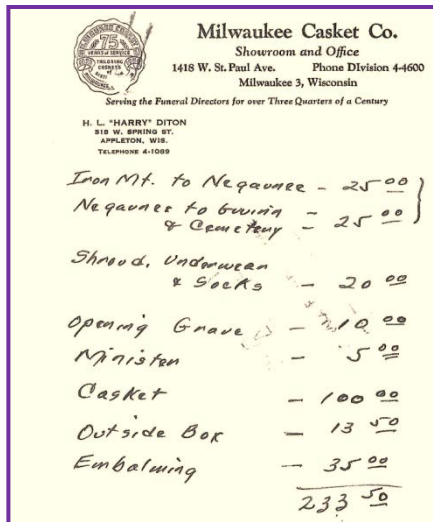 75
YEARS of SERVICE
Milwaukee Casket Co.
Showroom and Office
1418 W. St. Paul Ave. Phone DIvision 4-4600
Milwaukee 3, Wisconsin
Serving the Funeral Directors for over Three Quarters of a Century
H. L. "HARRY" DITON
518 W. SPRING ST.
APPLETON, WIS.
TELEPHONE 4-1089
Iron Mt. to Negaunee - 25 00
Negaunee to Gwinn
& Cemetery - 25 00
Shroud, Underwear
& Socks - 20 00
Opening Grave - 10 00
Minister - 5 00
Casket - 100 00
Outside Box - 13 50
Embalming - 35 00
233 50